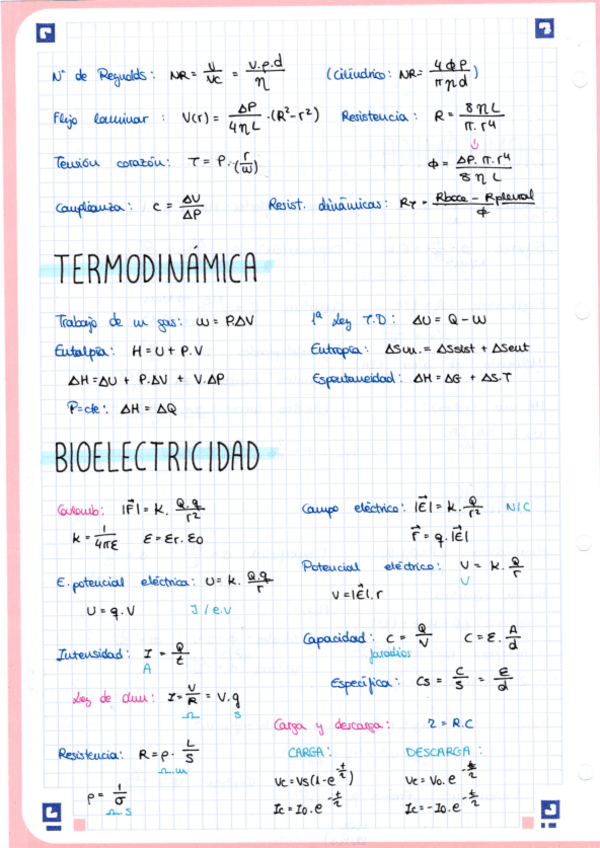 Nº de Reynolds: NR = v/vc = v.ρ.d/η (Cilíndrico: NR = 4ΦP/πηd)
Flujo laminar: V(r) = ΔP/4ηL · (R²-r²) Resistencia: R = 8ηL/π.r4
↓
Tensión corazón: T = P.(r/w) Φ = ΔP.π.r4/8ηL
Complianza: c = ΔU/ΔP Resist. dinámicas: RT = Rboca - Rpleural/Φ
TERMODINÁMICA
Trabajo de un gas: W = P.ΔV 1ª Ley T.D: ΔU = Q - W
Entalpía: H = U + P.V Entropía: ΔSun. = ΔSsist + ΔSent
ΔH = ΔU + P.ΔV + V.ΔP Espontaneidad: ΔH = ΔG + ΔS.T
P=cte: ΔH = ΔQ
BIOELECTRICIDAD
Coulomb: |F⃗| = K. Q.q/r² Campo eléctrico: |E⃗| = K. Q/r² N/C
K = 1/4πε ε = εr. ε0 F⃗ = q.|E⃗|
E. potencial eléctrica: U = K. Q.q/r Potencial eléctrico: V = K. Q/r
V
U = q.V J/e.V V = |E⃗|.r
Intensidad: I = Q/t Capacidad: C = Q/V C = ε. A/d
A faradios
Ley de Ohm: I = V/R = V.g Específica: Cs = C/S = ε/d
Ω S
Carga y descarga: τ = R.C
Resistencia: R = ρ. L/S CARGA: DESCARGA:
Ω.m
Vc = Vs(1-e^-t/τ) Vc = V0.e^-t/τ
ρ = 1/σ Ic = I0.e^-t/τ Ic = -I0.e^-t/τ
Ω.S